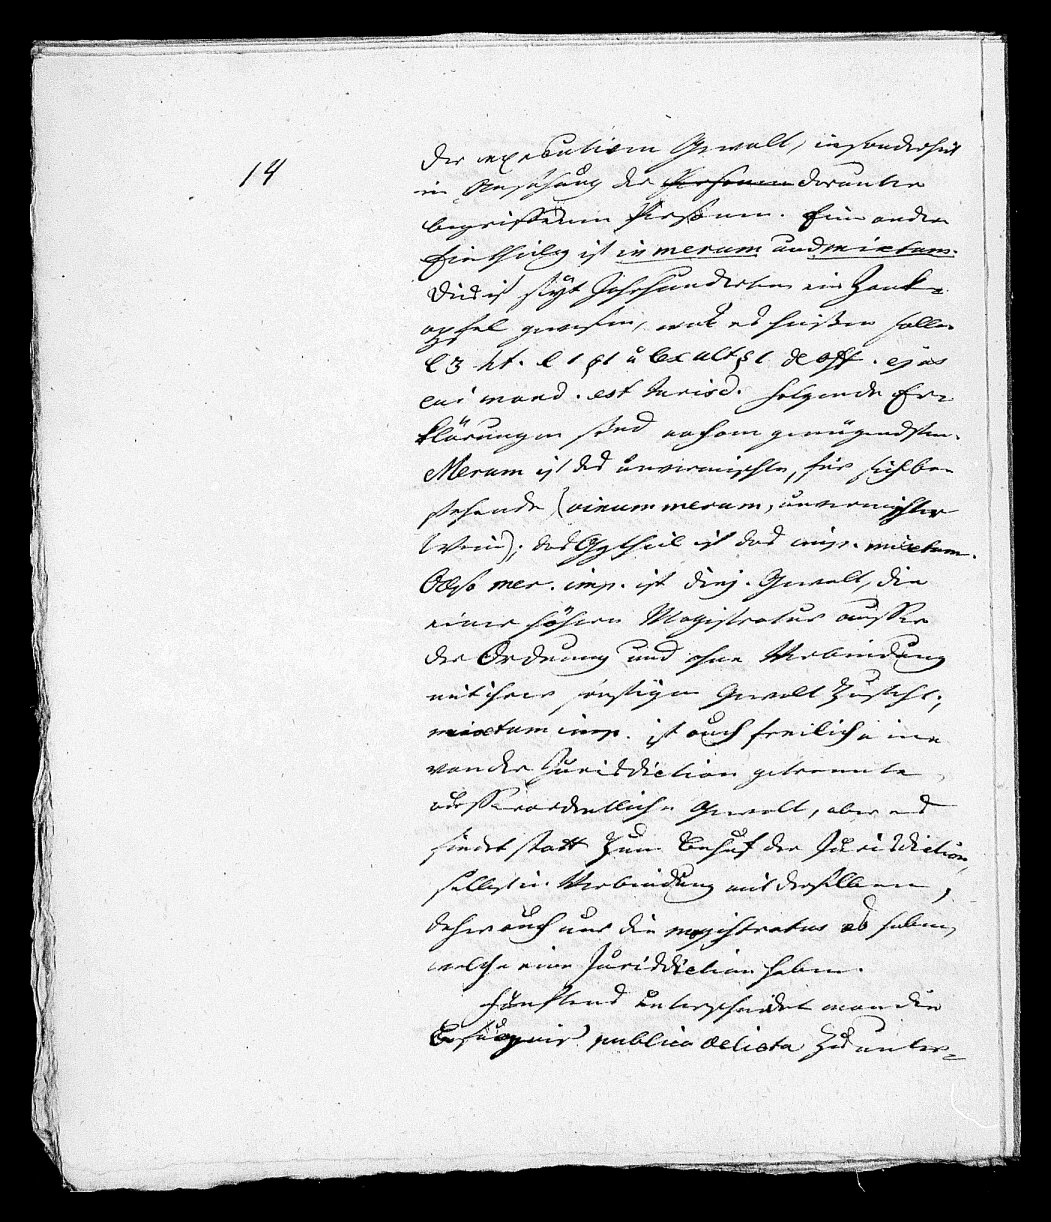 14
der executiven Gewalt, insonderheit
in Ansehung der Personen darunter
begriffenen Personen. Eine andere
Eintheilg ist in merum und mixtum.
Dies ist seit Jahrhunderten ein Zank-
apfel gewesen, was es heißen solle.
l 3 ht. l 1 § 1 u l ex ult § 1 de off. ejus
cui mand. est Jurisd. folgende Er-
klärungen sind noch am genügendsten.
Merum ist das unvermischte, für sich be-
stehende (vinum merum, unvermischter
Wein); das Ggtheil ist das imp. mixtum.
Also mer. imp. ist diej. Gewalt, die
einer höhern Magistratur ausser
der Ordnung und ohne Verbindung
mit ihrer sonstigen Gewalt zusteht;
mixtum imp. ist auch freilich eine
von der Jurisdiction getrennte
ausserordentliche Gewalt, aber es
findet statt zum Behuf der Jurisdiction,
selbst in Verbindung mit derselben,
daher auch nur die magistratus es haben,
welche eine Jurisdiction haben.
Fünftens unterscheidet man die
Befugnis publica delicta zu unter-